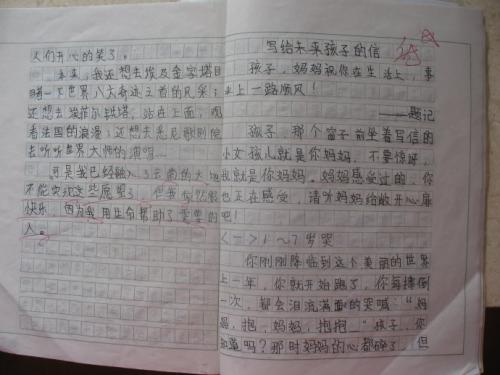 人们开心的笑了。
未来，我还想去埃及金字塔目
睹一下世界八大奇迹之首的风采；
还想去埃菲尔铁塔，站在上面，观
看法国的浪漫；还想去悉尼歌剧院
去听听世界大师的演唱……
可是我已经融入了云南的大地
不能实现这些愿望了，但我依然很
快乐，因为我用生命帮助了需要的
人。
写给未来孩子的信
孩子，妈妈祝你在生活上，事
业上一路顺风！
——题记
孩子，那个窗子前坐着写信的
小女孩儿就是你妈妈，不要惊讶，
我就是你妈妈。妈妈感受过的，你
也正在感受，请听妈妈给敞开心扉
吧！
<一>1~7岁哭
你刚刚降临到这个美丽的世界
上一年，你就开始跑了，你每摔倒
一次，都会泪流满面的哭喊“妈
妈，抱，妈妈，抱抱。”孩子，你
知道吗？那时妈妈的心都碎了，但